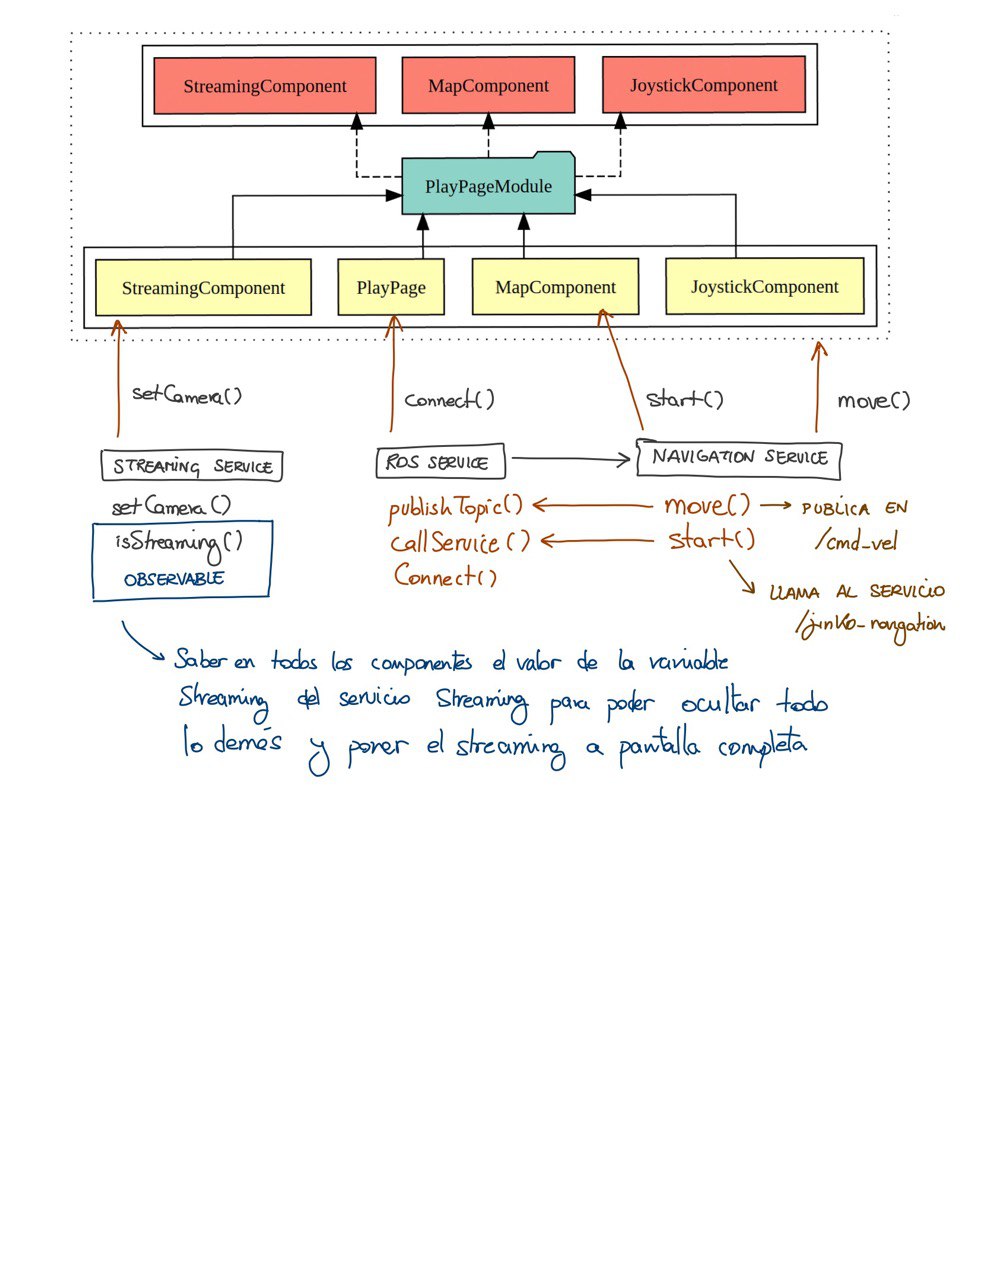 StreamingComponent
MapComponent
JoystickComponent
PlayPageModule
StreamingComponent
PlayPage
MapComponent
JoystickComponent
setCamera()
Connect()
start()
move()
STREAMING SERVICE
ROS SERVICE
NAVIGATION SERVICE
setCamera()
isStreaming()
OBSERVABLE
publishTopic()
callService()
Connect()
move()
start()
PUBLICA EN
/cmd_vel
LLAMA AL SERVICIO
/jinko_navigation
Saber en todos los componentes el valor de la variable
Streaming del servicio Streaming para poder ocultar todo
lo demás y poner el streaming a pantalla completa